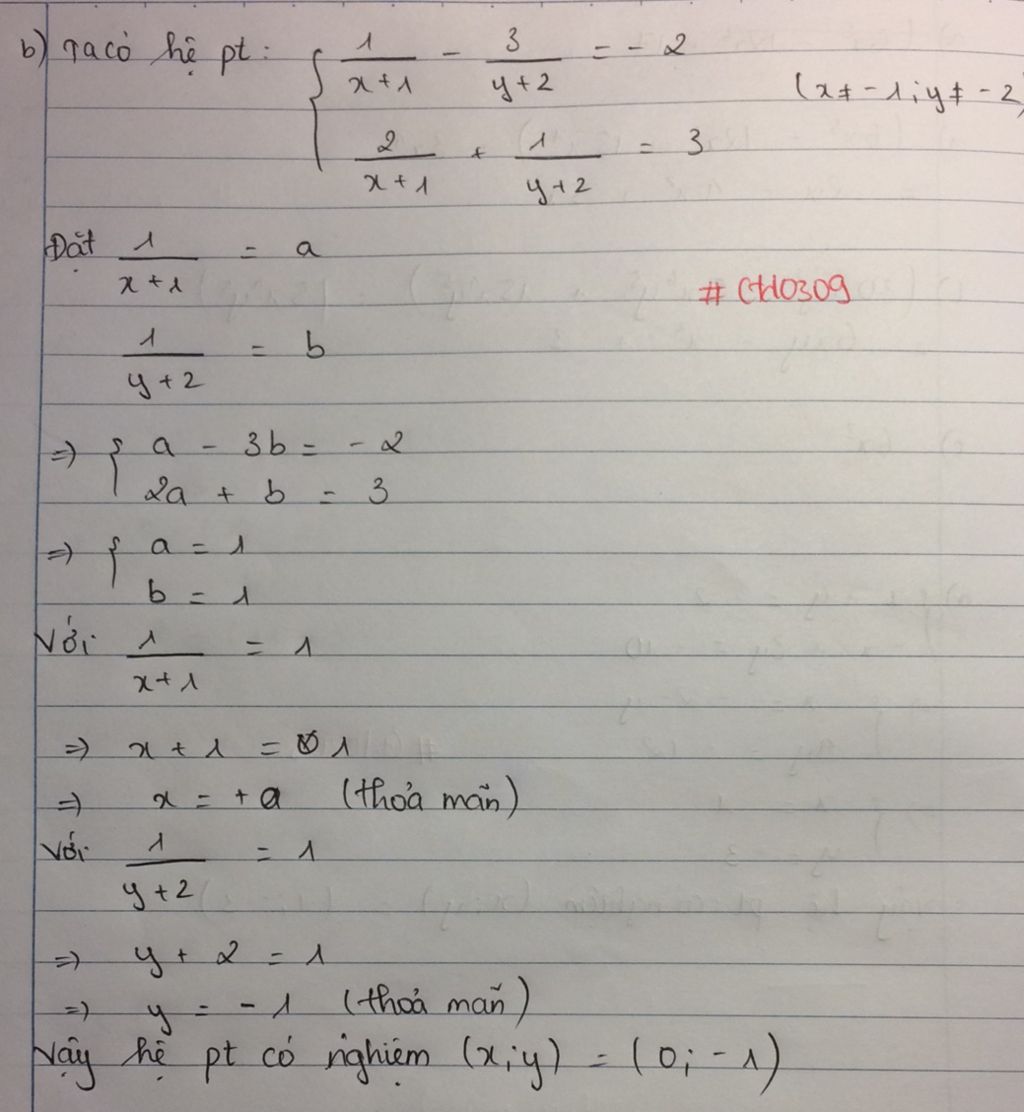 b) Ta có hệ pt: { 1/(x+1) - 3/(y+2) = -2
(x ≠ -1; y ≠ -2)
2/(x+1) + 1/(y+2) = 3
Đặt 1/(x+1) = a
#CTH0309
1/(y+2) = b
=> { a - 3b = -2
2a + b = 3
=> { a = 1
b = 1
Với 1/(x+1) = 1
=> x + 1 = 1
=> x = (thoả mãn)
Với 1/(y+2) = 1
=> y + 2 = 1
=> y = -1 (thoả mãn)
Vậy hệ pt có nghiệm (x;y) = (0; -1)